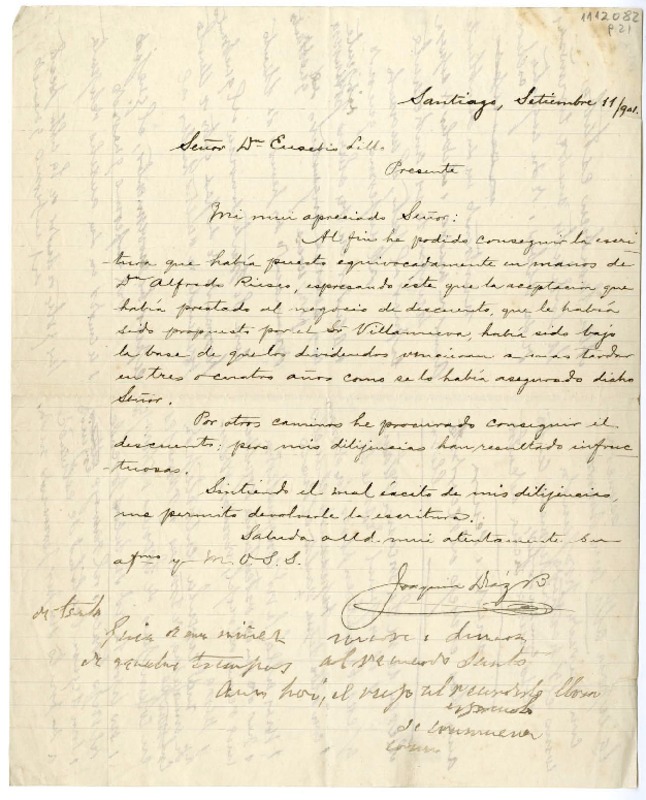 1112082
p21
Santiago, Setiembre 11/901.
Señor Dn Eusebio Lillo
Presente
Mi mui apreciado Señor:
Al fin he podido conseguir la escri-
tura que había puesto equivocadamente en manos de
Dn Alfredo Riesco, espresando éste que la aceptacion que
había prestado al negocio de descuento, que le había
sido propuesto por el Sr Villanueva, había sido bajo
la base de que los dividendos vencieran a mas tardar
en tres o cuatro años como se lo había asegurado dicho
Señor.
Por otros caminos he procurado conseguir el
descuento; pero mis dilijencias han resultado infruc-
-tuosas.
Sintiendo el mal écsito de mis dilijencias,
me permito devolverle la escritura.
Saluda a Ud. mui atentamente su
afmo y M. O. S. S.
Joaquin Díaz B.
de mi niñez
al recuerdo santo
Aun hoi, el viejo al recuerdo llora
se conmueve
como